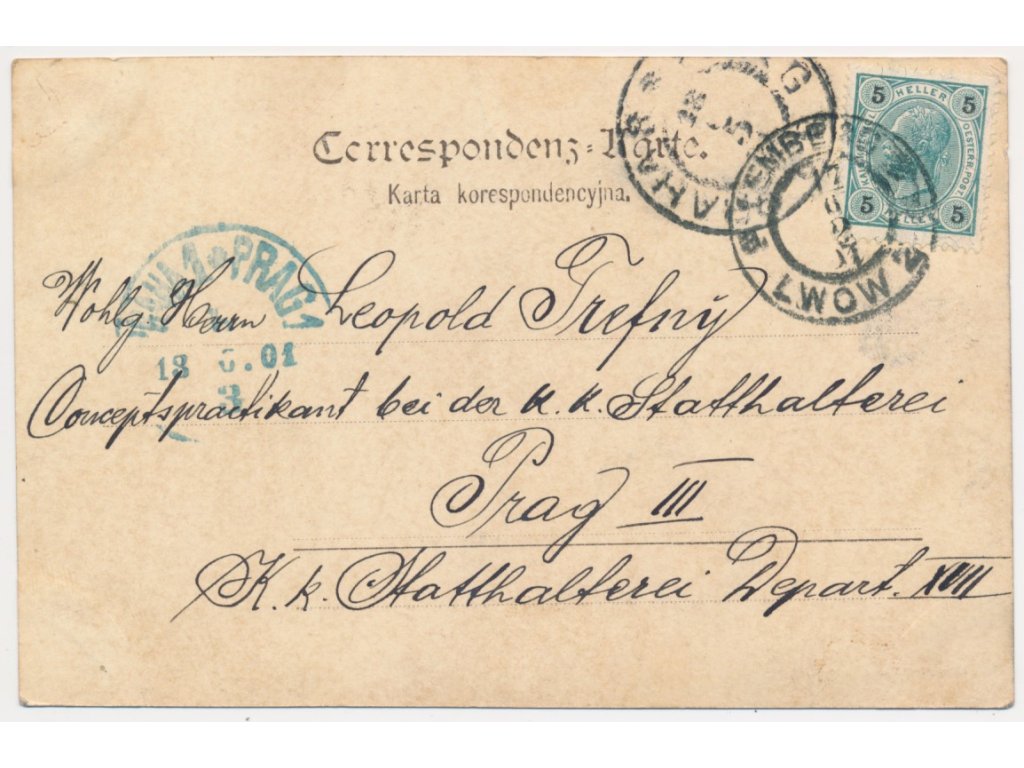 Correspondenz-Karte.
Karta korespondencyjna.
5 HELLER 5
5 HELLER 5
OESTERR. POST
LEMBERG
LWOW 2
PRAHA 1 * PRAG 1
18 5. 01
3
Wohlg Herrn Leopold Trefný
Conceptspractikant bei der k. k. Statthalterei
Prag III
K. k. Statthalterei Depart. XVIII